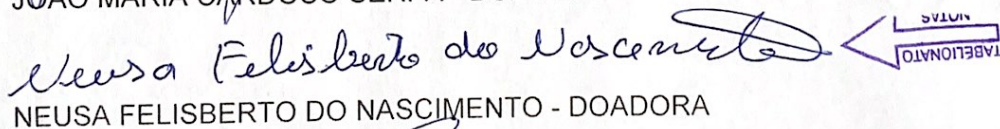 JOÃO MARIA CARDOSO SERPA - DO
Neusa Felisberto do Nascimento
TABELIONATO
NEUSA FELISBERTO DO NASCIMENTO - DOADORA